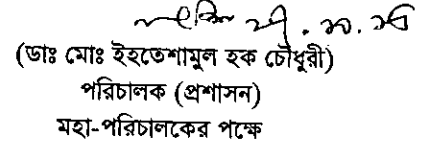 (ডাঃ মোঃ ইহতেশামুল হক চৌধুরী)
পরিচালক (প্রশাসন)
মহা-পরিচালকের পক্ষে